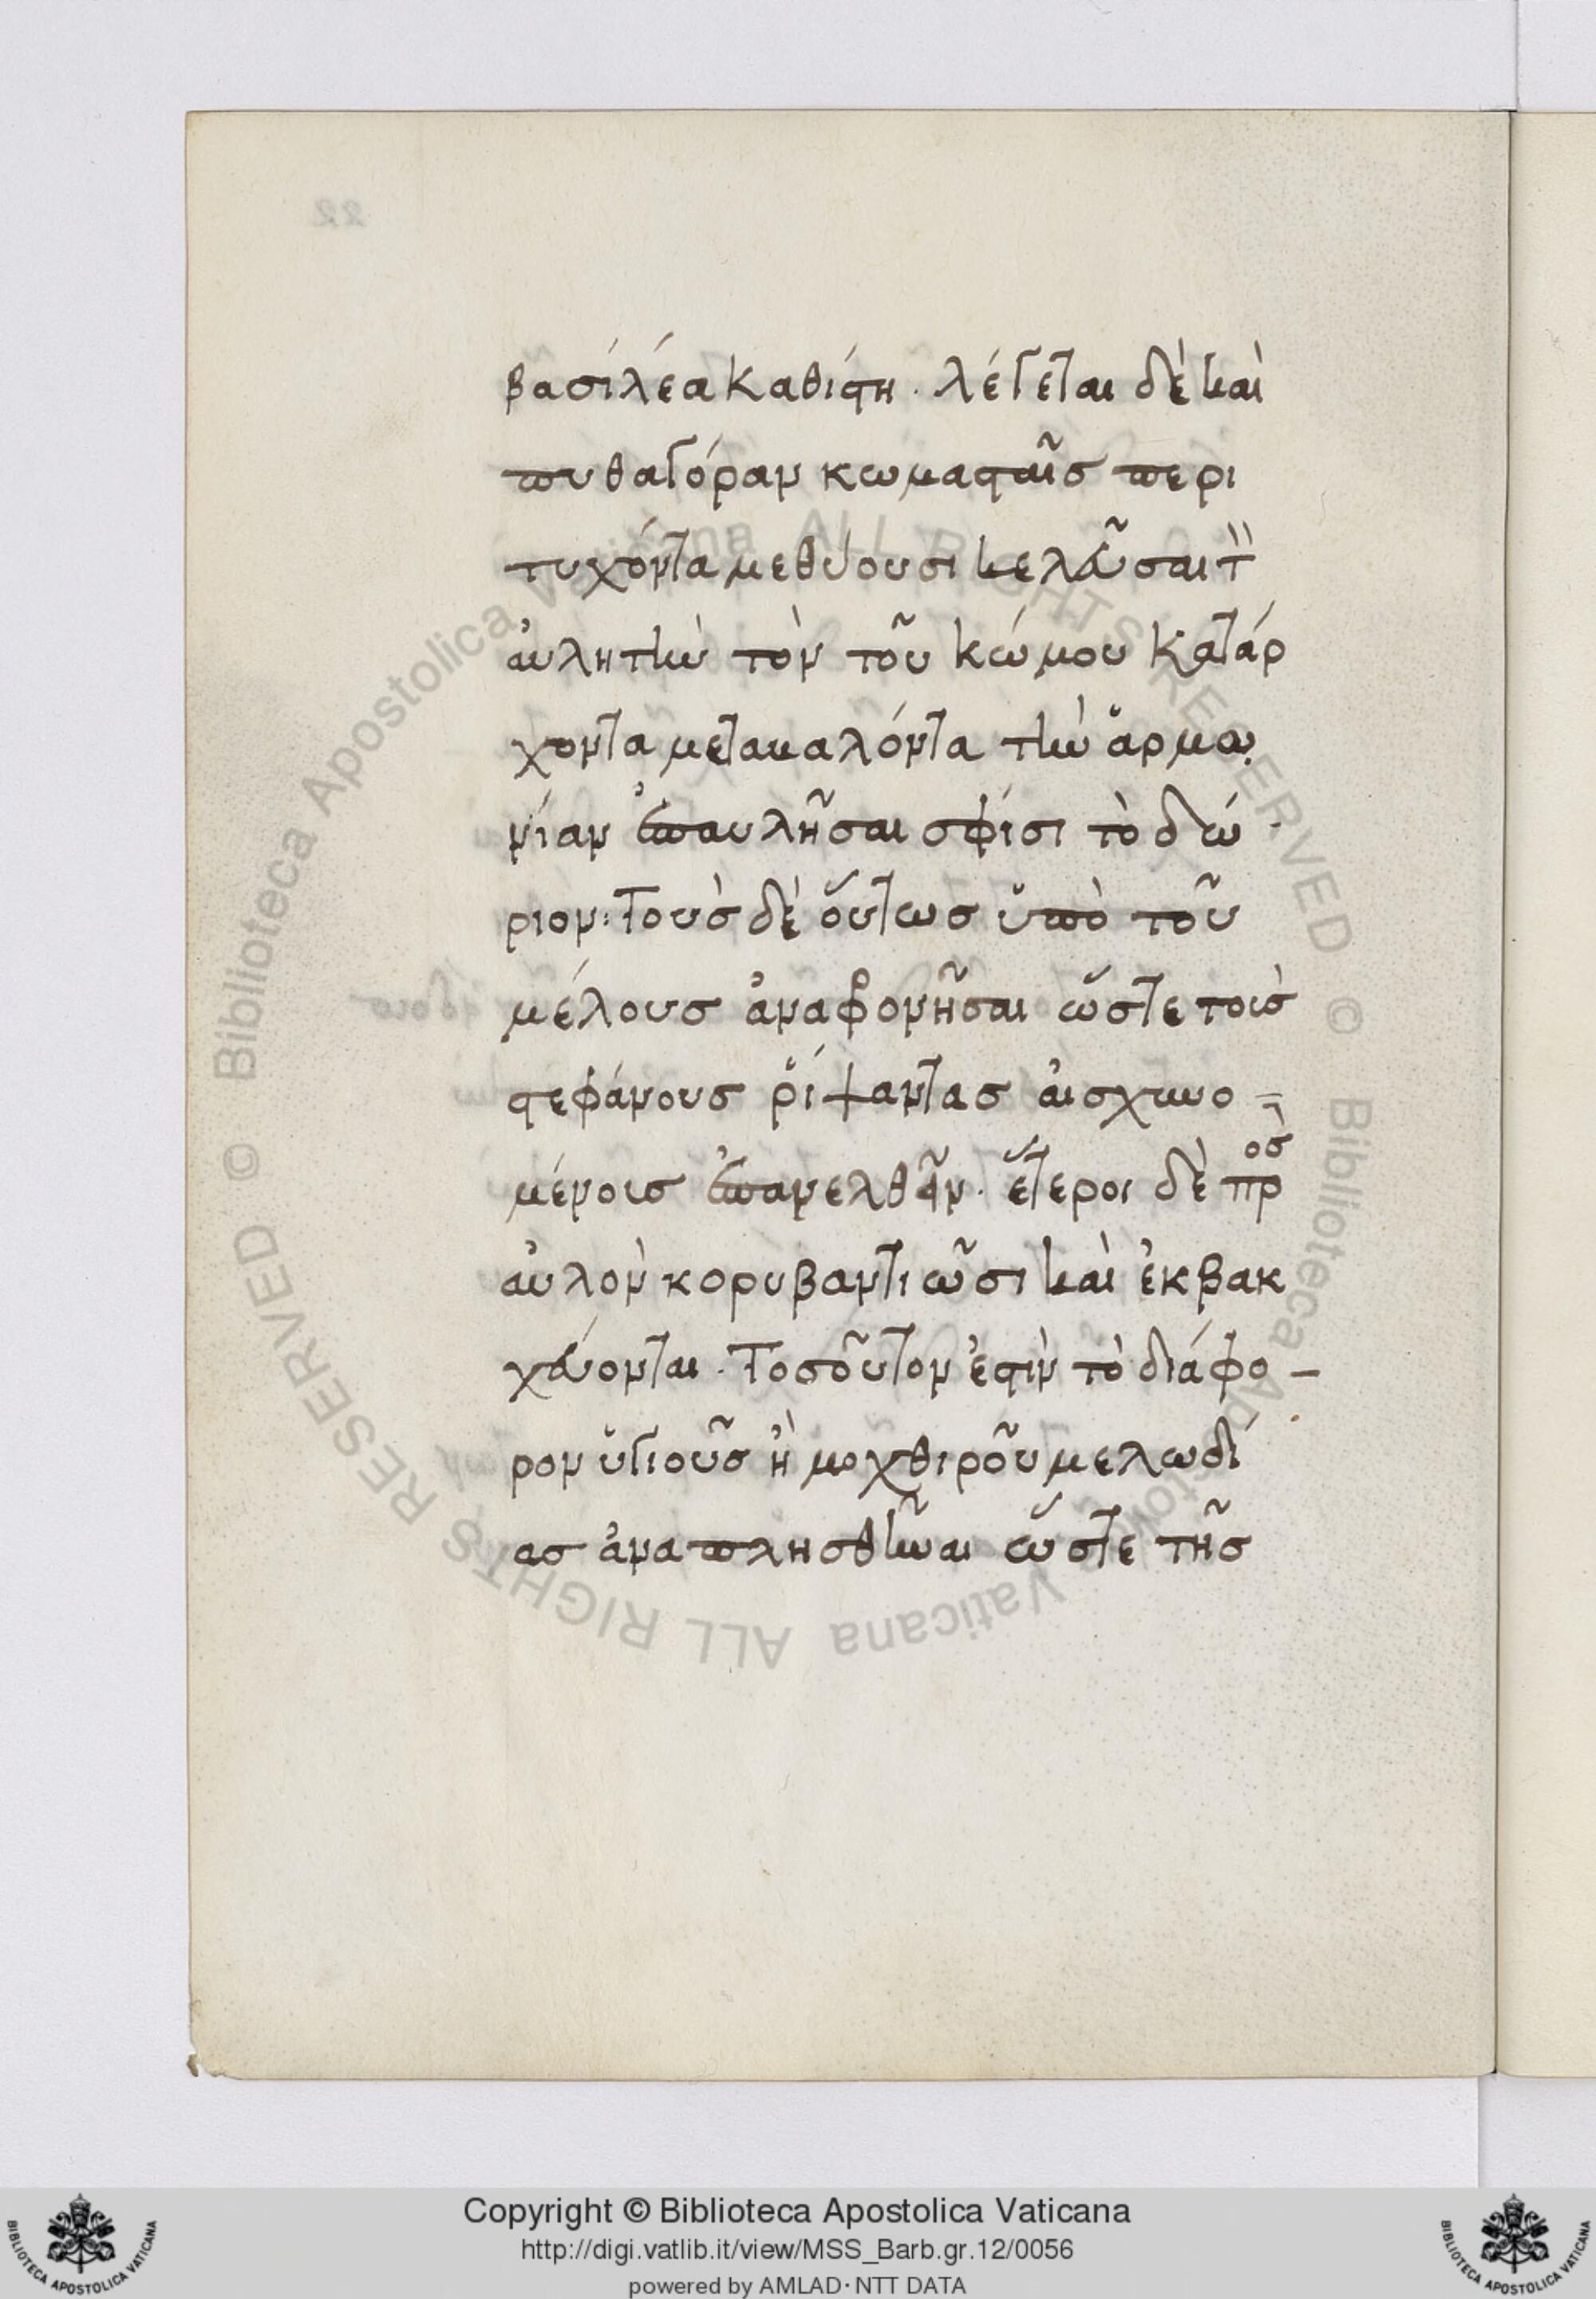 βασιλέα καθίστη. λέγεται δὲ καὶ
πυθαγόραν κωμασταῖς περι
τυχόντα μεθύουσι κελεῦσαι τ̀
αὐλητὴν τὸν τοῦ κώμου κατάρ
χοντα μετακαλόντα τὴν ἁρμο
νίαν ἐπαυλῆσαι σφίσι τὸ δώ
ριον: Τοὺς δὲ οὕτως ὑπὸ τοῦ
μέλους ἀναφρονῆσαι ὥστε τοὺς
στεφάνους ῥίψαντας αἰσχυνο-
μένοις ἐπανελθεῖν. ἕτεροι δὲ πρὸς
αὐλὸν κορυβαντιῶσι καὶ ἐκβακ
χεύονται. Τοσοῦτον ἐστὶν τὸ διάφο-
ρον ὑγιοῦς ἢ μοχθιροῦ μελωδί
ας ἀναπλησθῆναι ὥστε τῆς
22
Copyright © Biblioteca Apostolica Vaticana
http://digi.vatlib.it/view/MSS_Barb.gr.12/0056
powered by AMLAD·NTT DATA
© Biblioteca Apostolica Vaticana ALL RIGHTS RESERVED
© Biblioteca Apostolica Vaticana ALL RIGHTS RESERVED
BIBLIOTECA APOSTOLICA VATICANA
BIBLIOTECA APOSTOLICA VATICANA